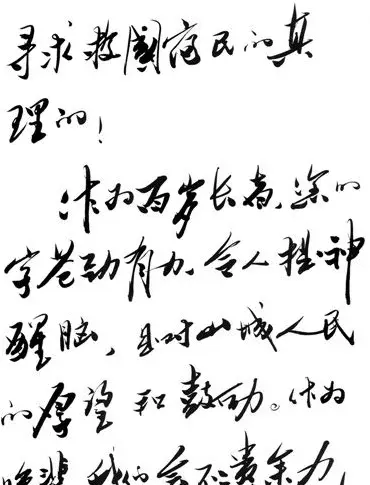 寻求救国富民的真
理的！
作为百岁长者，您的
字苍劲有力，令人提神
醒脑，是对山城人民
的厚望和鼓励。作为
晚辈，我们会不遗余力，